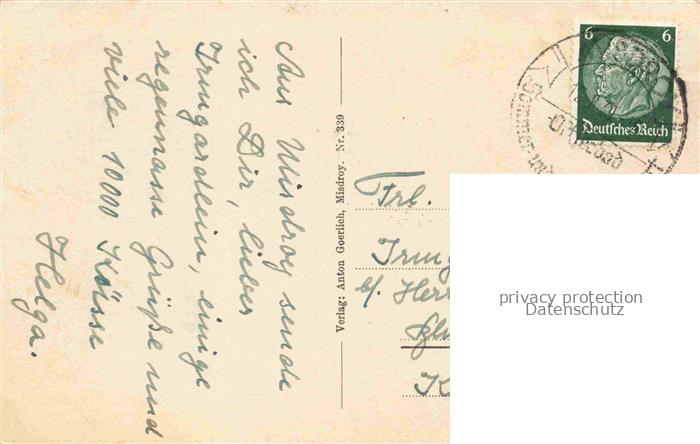 Aus Misdroy sende
ich Dir, lieber
Irmgardlein, einige
regennasse Grüße und
viele 10000 Küsse
Helga.
Verlag: Anton Goerlich, Misdroy. Nr. 339
6 6
Deutsches Reich
Ostseebad
Frl.
b/. Herr
privacy protection
Datenschutz